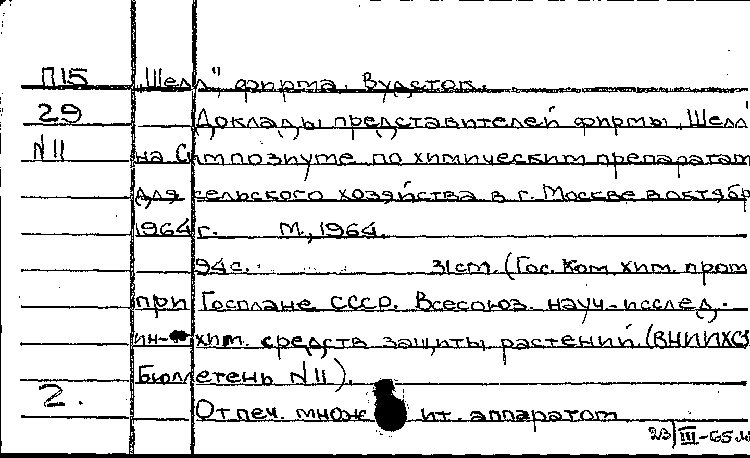 П15 „Шелл", фирма. Вудсток.
29 Доклады представителей фирмы „Шелл"
N11 на Симпозиуме по химическим препаратам
для сельского хозяйства в г. Москве в октябр
1964 г. М., 1964.
94 с. 31 см. (Гос. Ком. хим. пром
при Госплане СССР. Всесоюз. науч.-исслед.
ин- хим. средств защиты растений (ВНИИХС
Бюллетень N11).
2. Отпеч. множ ит. аппаратом
23/III-65